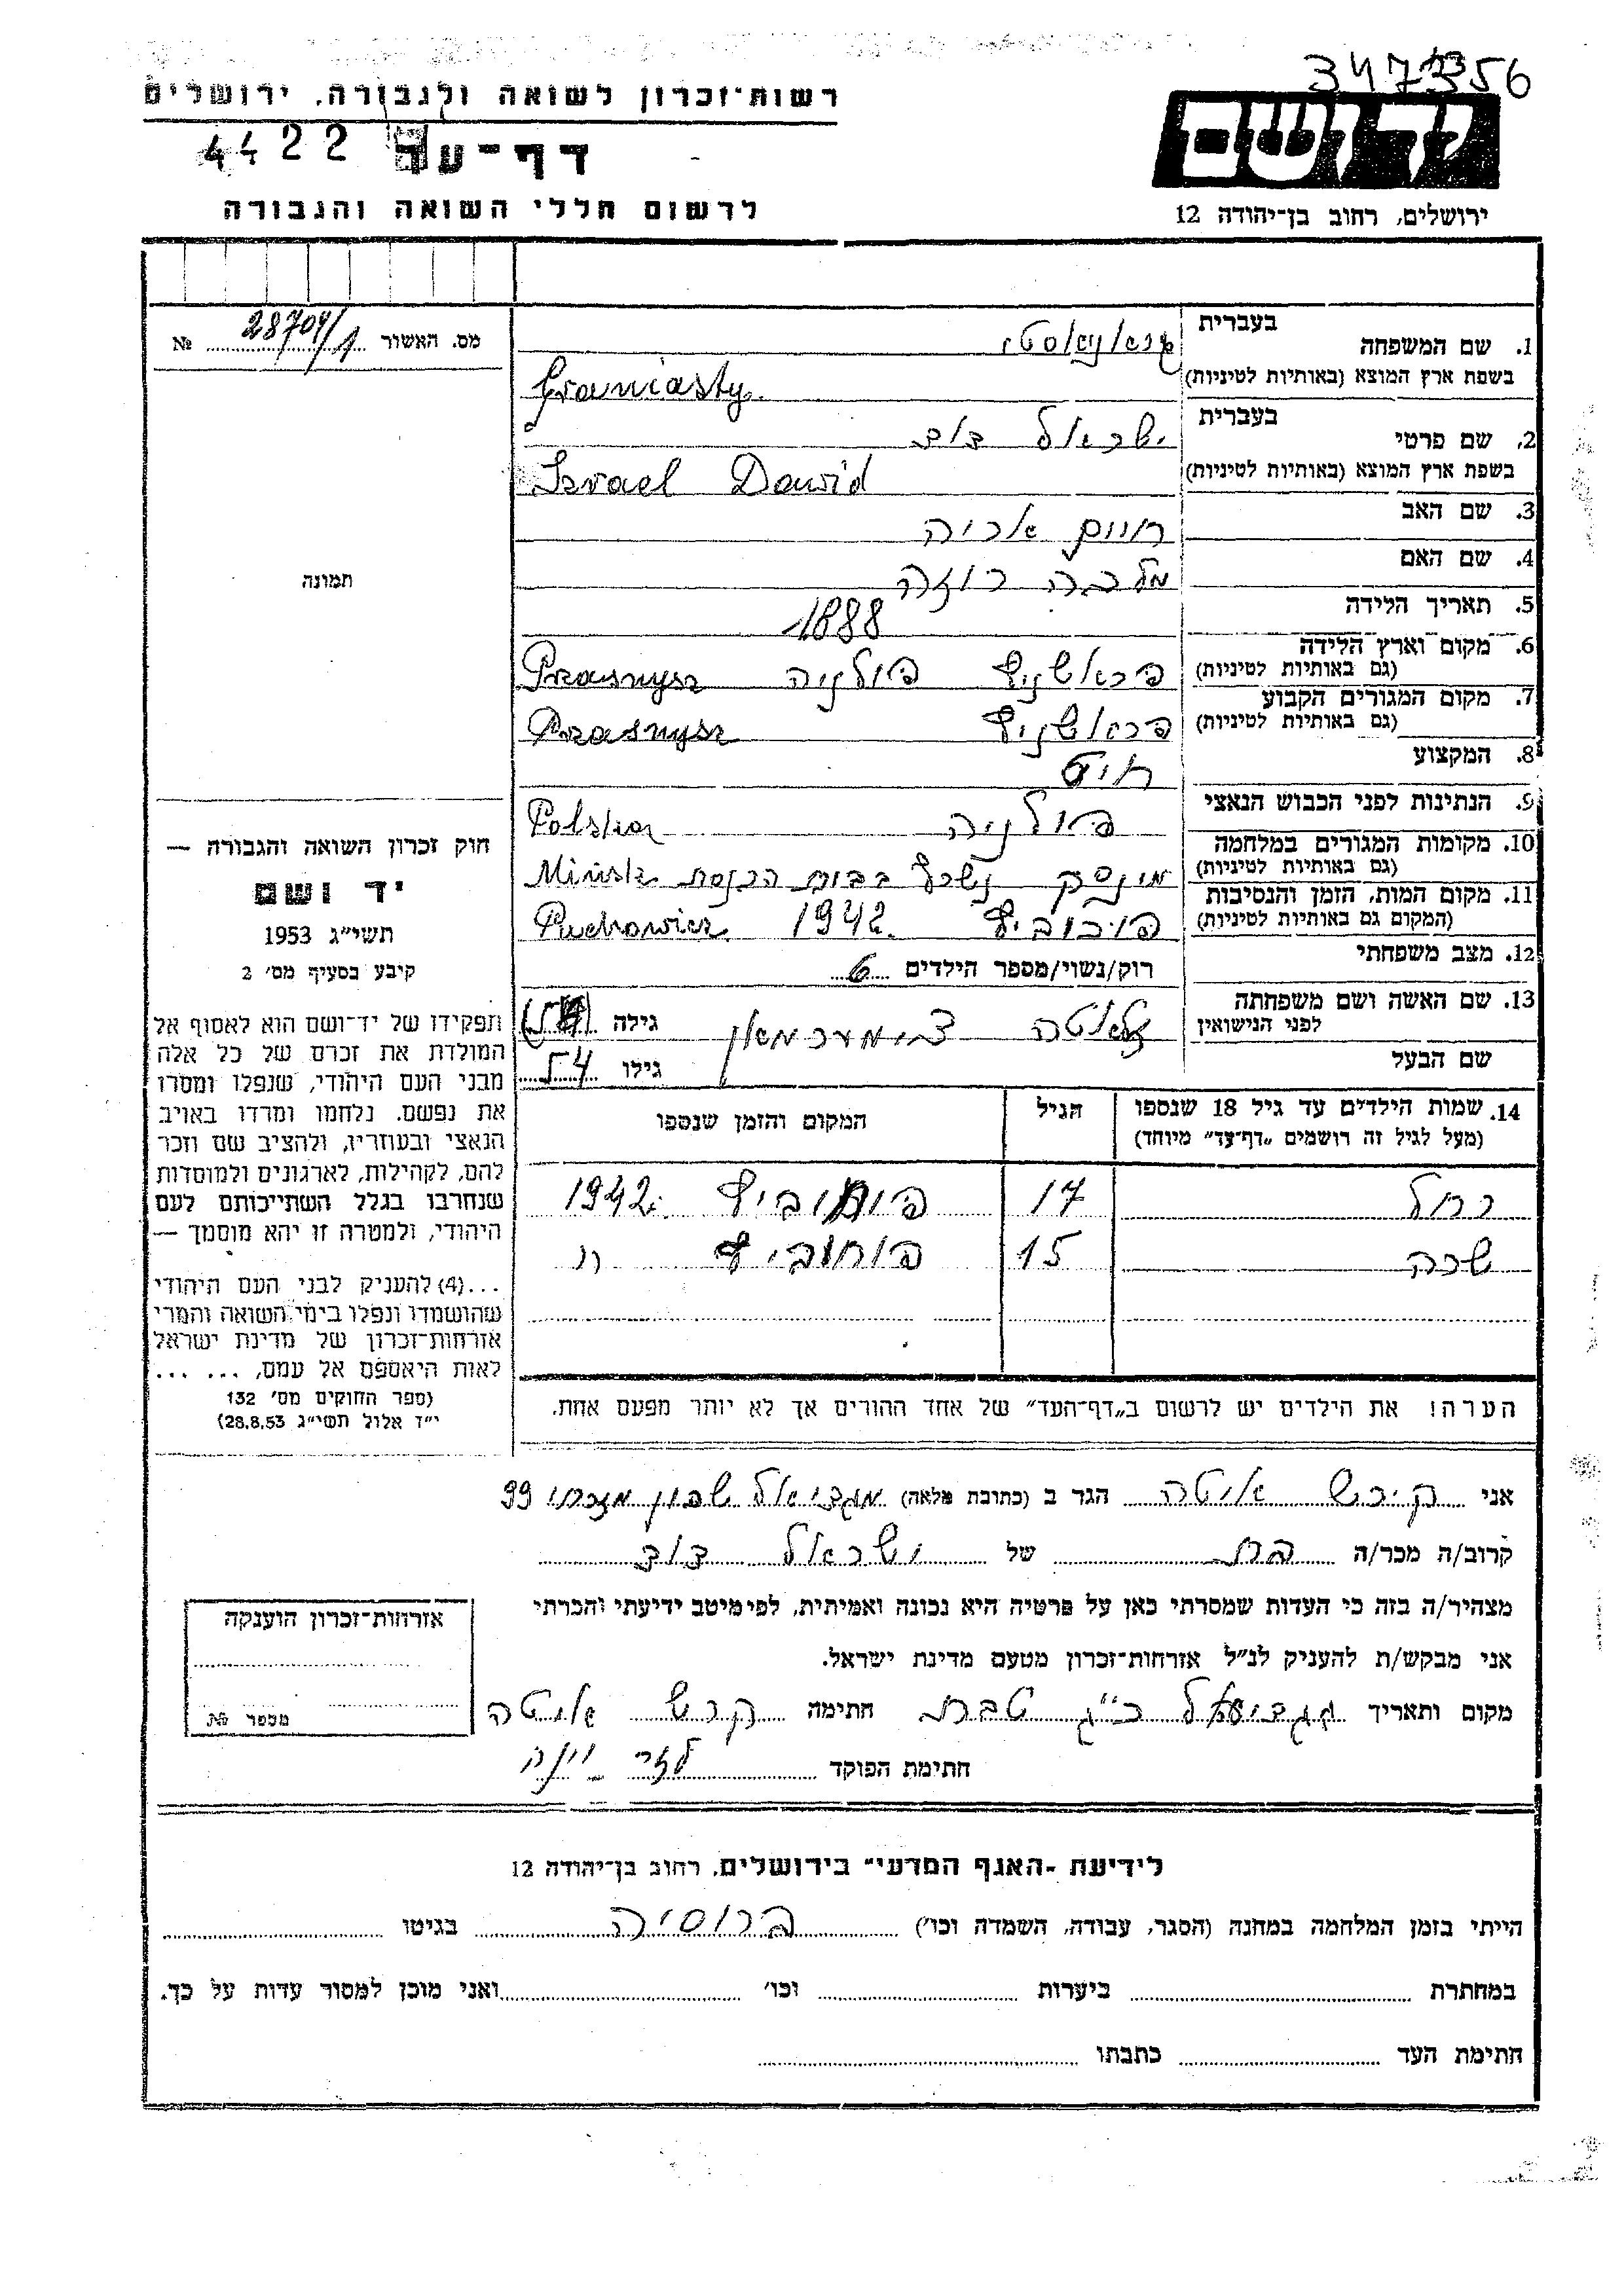 347356
רשות־זכרון לשואה ולגבורה, ירושלים
ידושם
דף־עד 4422
לרשום חללי השואה והגבורה
ירושלים, רחוב בן־יהודה 12
מס. האשור 28704/1 №
תמונה
חוק זכרון השואה והגבורה —
יד ושם
תשי״ג 1953
קיבע בסעיף מס׳ 2
תפקידו של יד־ושם הוא לאסוף אל
המולדת את זכרם של כל אלה
מבני העם היהודי, שנפלו ומסרו
את נפשם. נלחמו ומרדו באויב
הנאצי ובעוזריו, ולהציב שם וזכר
להם, לקהילות, לארגונים ולמוסדות
שנחרבו בגלל השתייכותם לעם
היהודי, ולמטרה זו יהא מוסמך —
...(4) להעניק לבני העם היהודי
שהושמדו ונפלו בימי השואה והמרי
אזרחות־זכרון של מדינת ישראל
לאות היאספם אל עמם, ... ...
(ספר החוקים מס׳ 132
י״ד אלול תשי״ג 28.8.53)
1. שם המשפחה בעברית גראניאסטי
בשפת ארץ המוצא (באותיות לטיניות) Graniasty
2. שם פרטי בעברית ישראל דוד
בשפת ארץ המוצא (באותיות לטיניות) Izrael Dawid
3. שם האב חיים אריה
4. שם האם מלכה רוזה
5. תאריך הלידה 1888
6. מקום וארץ הלידה (גם באותיות לטיניות) פראשניץ פולניה Przasnysz
7. מקום המגורים הקבוע (גם באותיות לטיניות) פראשניץ Przasnysz
8. המקצוע חיט
9. הנתינות לפני הכבוש הנאצי פולניה Polska
10. מקומות המגורים במלחמה (גם באותיות לטיניות) מינסק נשרף בבית הכנסת Minsk
11. מקום המות, הזמן והנסיבות (המקום גם באותיות לטיניות) פוכוביץ 1942 Puchowicz
12. מצב משפחתי רוק/נשוי/מספר הילדים 6
13. שם האשה ושם משפחתה לפני הנישואין זלאטה צימערמאן גילה
שם הבעל גילו 54
14. שמות הילדים עד גיל 18 שנספו הגיל המקום והזמן שנספו
(מעל לגיל זה רושמים „דף־עד״ מיוחד)
רחל 17 פוחוביץ 1942
שרה 15 פוחוביץ "
הערה! את הילדים יש לרשום ב„דף־העד״ של אחד ההורים אך לא יותר מפעם אחת.
אני קירש איטה הגר ב (כתובת מלאה) מגדיאל שכון מזרחי 99
קרוב/ה מכר/ה בת של ישראל דוד
מצהיר/ה בזה כי העדות שמסרתי כאן על פרטיה היא נכונה ואמיתית, לפי מיטב ידיעתי והכרתי
אני מבקש/ת להעניק לנ״ל אזרחות־זכרון מטעם מדינת ישראל.
מקום ותאריך מגדיאל כ״ג טבת חתימה קירש איטה
חתימת הפוקד
אזרחות־זכרון הוענקה
מספר №
לידיעת „האגף המדעי״ בירושלים, רחוב בן־יהודה 12
הייתי בזמן המלחמה במחנה (הסגר, עבודה, השמדה וכו׳) ברוסיה בגיטו
במחתרת ביערות וכו׳ ואני מוכן למסור עדות על כך.
חתימת העד כתבתו